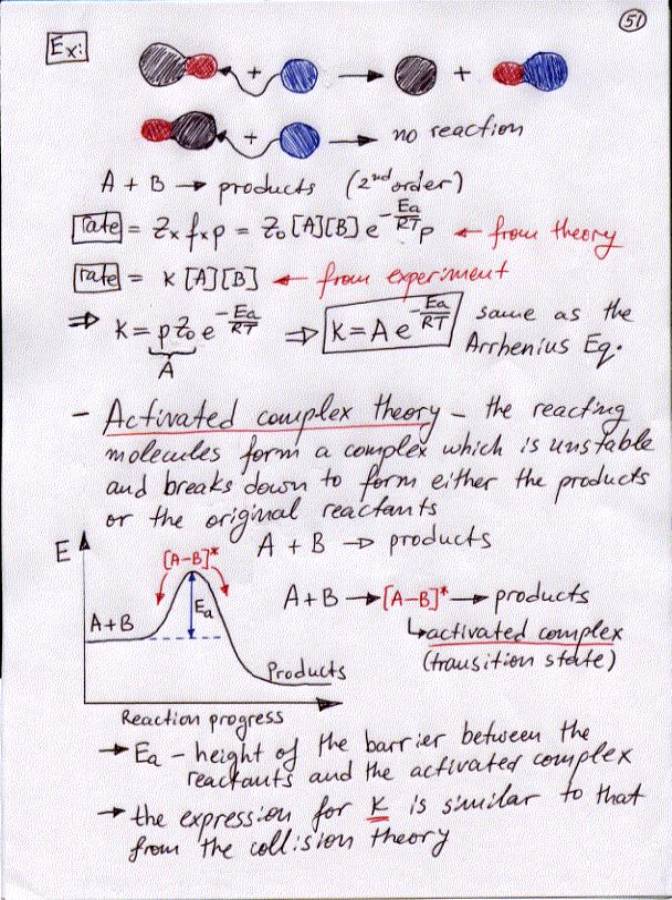 51
Ex:
+ → +
+ → no reaction
A + B → products (2nd order)
rate = Z x f x p = Z₀ [A][B] e^(-Ea/RT) p ← from theory
rate = k [A][B] ← from experiment
⇒ k = p Z₀ e^(-Ea/RT) ⇒ k = A e^(-Ea/RT) same as the
A Arrhenius Eq.
- Activated complex theory - the reacting
molecules form a complex which is unstable
and breaks down to form either the products
or the original reactants
E A + B → products
[A-B]*
A+B → [A-B]* → products
A+B Ea
↳ activated complex
(transition state)
Products
Reaction progress
→ Ea - height of the barrier between the
reactants and the activated complex
→ the expression for k is similar to that
from the collision theory